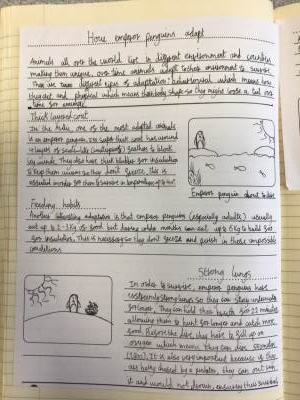 How emperor penguins adapt
Animals all over the world live in different environment and countries
making them unique. Over time animals adapt to their environment to survive.
There are two different types of adaptation: behavioural which means how
they act and physical which means their body shape so they might loose a tail over
time for example.
Thick layered coat
In the Artic, one of the most adapted animals
is an emperor penguin. Its super thick coat has several
layers of scale-like feathers to block
icy winds. They also have thick blubber for insulation
to keep them warm so they don't freeze. This is
essential
Emperor penguin about to dive
Feeding habits
Another interesting adaptation is that emperor penguins (especially adults) usually
eat up to 2-3 Kg of food but during colder months can eat up to 6 Kg to build
for insulation. This is necessary so they don't freeze and perish in those impossible
conditions.
Strong lungs
In order to survive, emperor penguins have
extremely strong lungs so they can stay underwater
for longer. They can hold their breath for 22 minutes
allowing them to hunt for longer and catch more
food. Before the dive, they have to fill up on
oxygen which means they can dive
It is also very important because if they
are being chased by a predator, they can out swim
it and would not drown, ensuring their survival